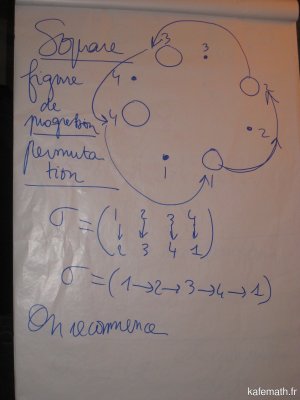 Square
figure
de
progression
permuta
tion
3
3
4
4
2
2
1
1
σ = ( 1 2 3 4
↓ ↓ ↓ ↓
2 3 4 1 )
σ = ( 1 → 2 → 3 → 4 → 1 )
On recommence
kafemath.fr